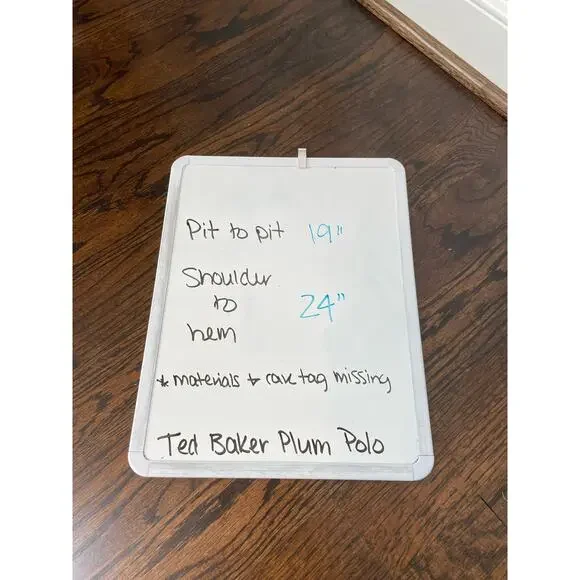 Pit to pit 19"
Shoulder
to 24"
hem
* materials + care tag missing
Ted Baker Plum Polo